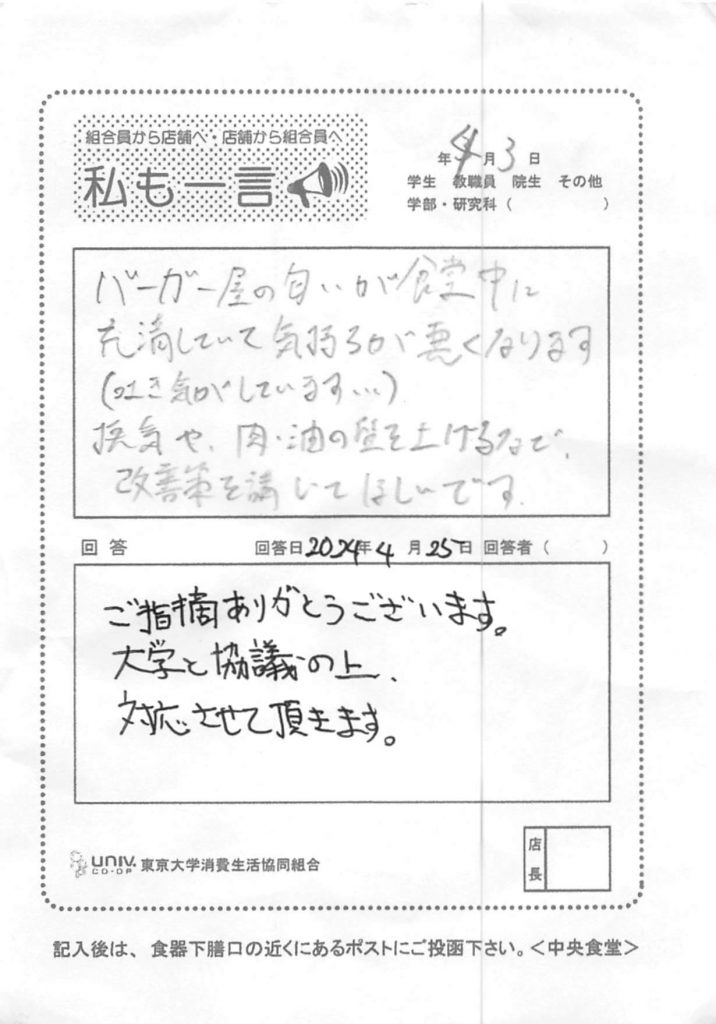 組合員から店舗へ・店舗から組合員へ
私も一言
年4月3日
学生 教職員 院生 その他
学部・研究科（ ）
バーガー屋の匂いが食堂中に
充満していて気持ちが悪くなります
(吐き気がしています…)
換気や、肉・油の質を上げるなど、
改善策を講じてほしいです。
回答 回答日2024年4月25日 回答者（ ）
ご指摘ありがとうございます。
大学と協議の上、
対応させて頂きます。
店長
UNIV. CO-OP 東京大学消費生活協同組合
記入後は、食器下膳口の近くにあるポストにご投函下さい。＜中央食堂＞